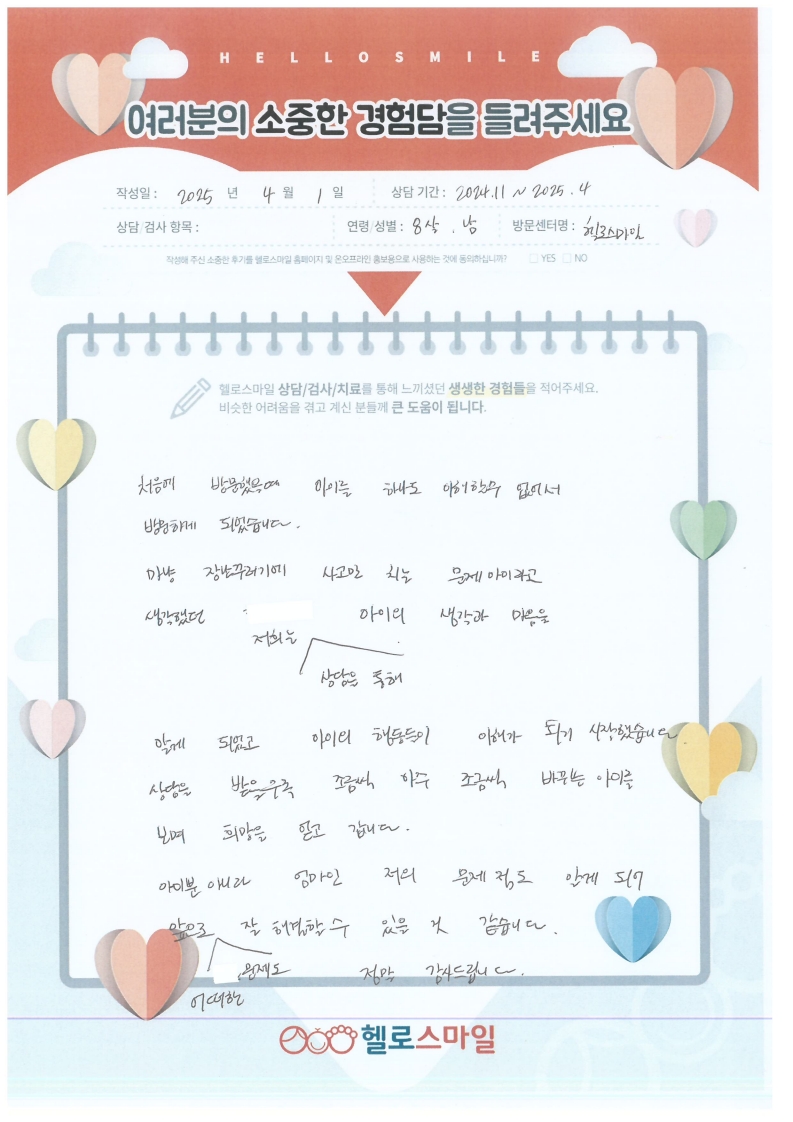 HELLOSMILE
여러분의 소중한 경험담을 들려주세요
작성일 : 2025 년 4 월 1 일 상담 기간 : 2024.11 ~ 2025.4
상담/검사 항목 : 연령/성별 : 8살 . 남 방문센터명 : 헬로스마일
작성해 주신 소중한 후기를 헬로스마일 홈페이지 및 온오프라인 홍보용으로 사용하는 것에 동의하십니까? YES NO
헬로스마일 상담/검사/치료를 통해 느끼셨던 생생한 경험들을 적어주세요.
비슷한 어려움을 겪고 계신 분들께 큰 도움이 됩니다.
처음에 방문했을때 아이를 하나도 이해할수 없어서
방문하게 되었습니다.
마냥 장난꾸러기에 사고만 치는 문제아이라고
생각했던 아이의 생각과 마음을
저희는
상담을 통해
알게 되었고 아이의 행동들이 이해가 되기 시작했습니다
상담을 받을수록 조금씩 아주 조금씩 바뀌는 아이를
보며 희망을 얻고 갑니다.
아이뿐 아니라 엄마인 저의 문제점도 알게 되어
앞으로 잘 해결할 수 있을 것 같습니다.
문제도 정말 감사드립니다.
어떠한
헬로스마일